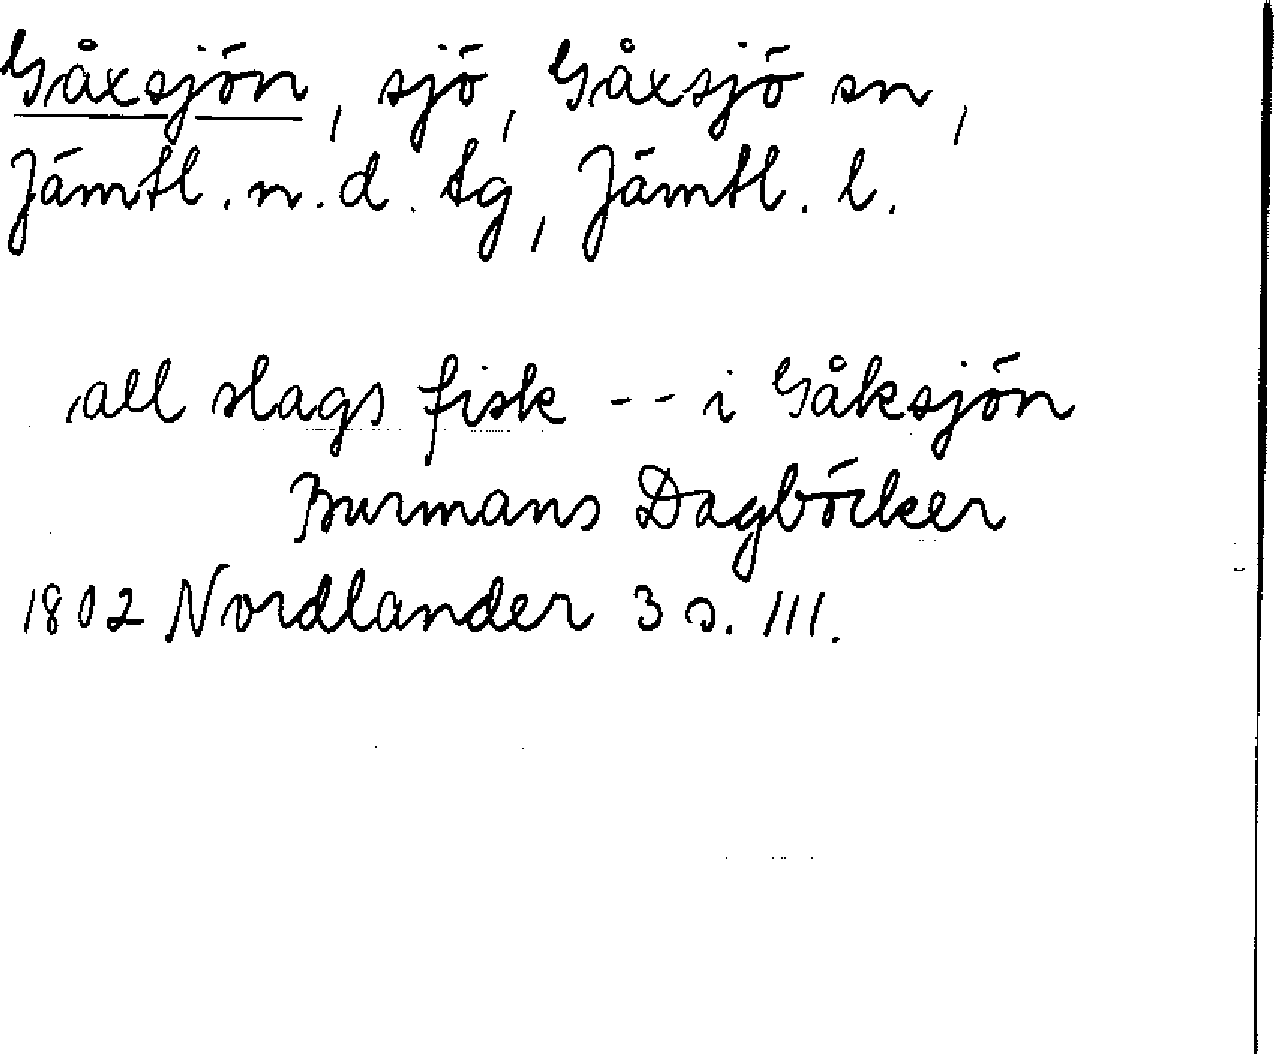 Gåxsjön, sjö, Gåxsjö sn,
Jämtl. n. d. tg, Jämtl. l.
all slags fisk -- i Gåksjön
Burmans Dagböcker
1802 Nordlander 3 s. 111.